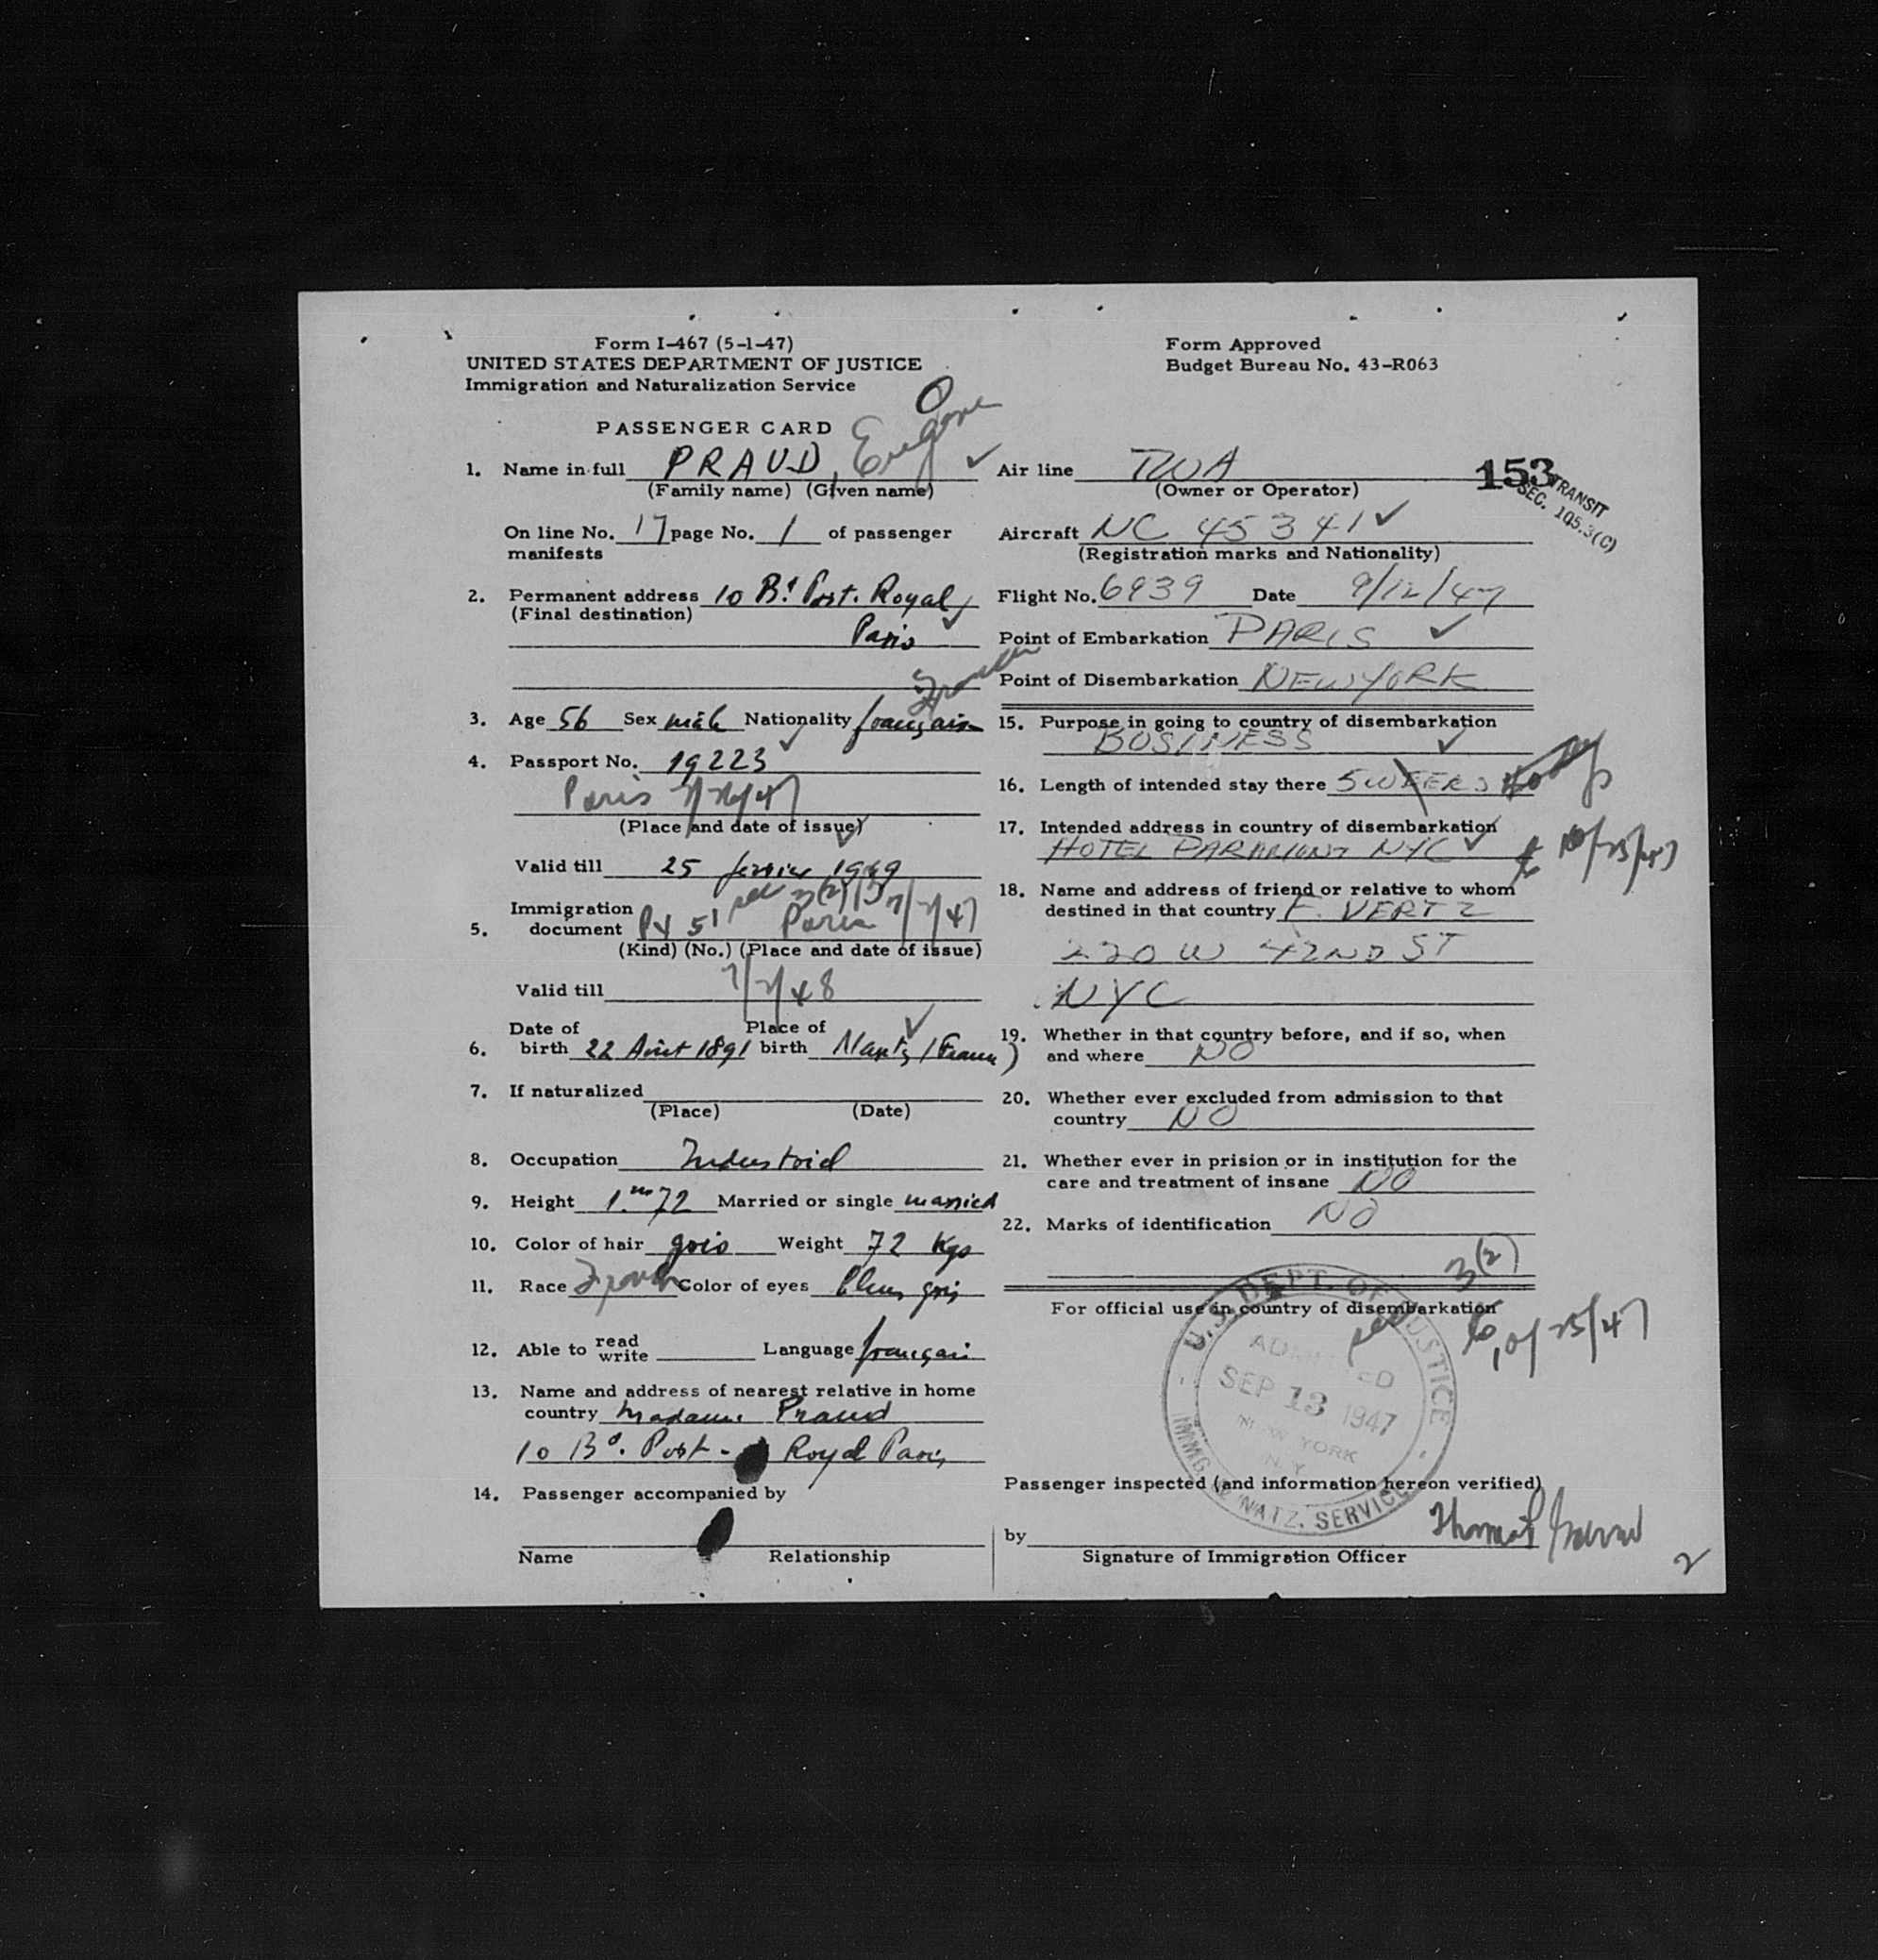 Form I-467 (5-1-47)
UNITED STATES DEPARTMENT OF JUSTICE
Immigration and Naturalization Service
Form Approved
Budget Bureau No. 43-R063
PASSENGER CARD
1. Name in full PRAUD,
(Family name) (Given name)
On line No. 17 page No. 1 of passenger
manifests
2. Permanent address 10 Bd Port. Royal
(Final destination)
Paris
3. Age 56 Sex male Nationality
4. Passport No. 19223
Paris
(Place and date of issue)
Valid till 25
Immigration
5. document 51 3(2) Paris 7/7/47
(Kind) (No.) (Place and date of issue)
Valid till 7/7/48
Date of Place of
6. birth 22 Août 1891 birth
7. If naturalized
(Place) (Date)
8. Occupation Industriel
9. Height 1.m72 Married or single married
10. Color of hair gris Weight 72 Kgs
11. Race French Color of eyes bleus gris
12. Able to read
write Language
13. Name and address of nearest relative in home
country Madame Praud
10 Bd. Port - Royal Paris
14. Passenger accompanied by
Name Relationship
Air line TWA
(Owner or Operator)
153
TRANSIT
SEC. 105.3(C)
Aircraft NC 45341
(Registration marks and Nationality)
Flight No. 6939 Date 9/12/47
Point of Embarkation PARIS
Point of Disembarkation NEW YORK
15. Purpose in going to country of disembarkation
BUSINESS
16. Length of intended stay there 5 WEEKS
17. Intended address in country of disembarkation
HOTEL PARAMOUNT NYC
18. Name and address of friend or relative to whom
destined in that country F. VERTZ
220 W 42ND ST
NYC
19. Whether in that country before, and if so, when
and where NO
20. Whether ever excluded from admission to that
country NO
21. Whether ever in prision or in institution for the
care and treatment of insane NO
22. Marks of identification NO
3(2)
For official use in country of disembarkation
10/25/47
U.S. DEPT. OF JUSTICE
ADMITTED
SEP 13 1947
NEW YORK
N.Y.
IMMG. & NATZ. SERVICE
Passenger inspected (and information hereon verified)
by Thomas
Signature of Immigration Officer
2